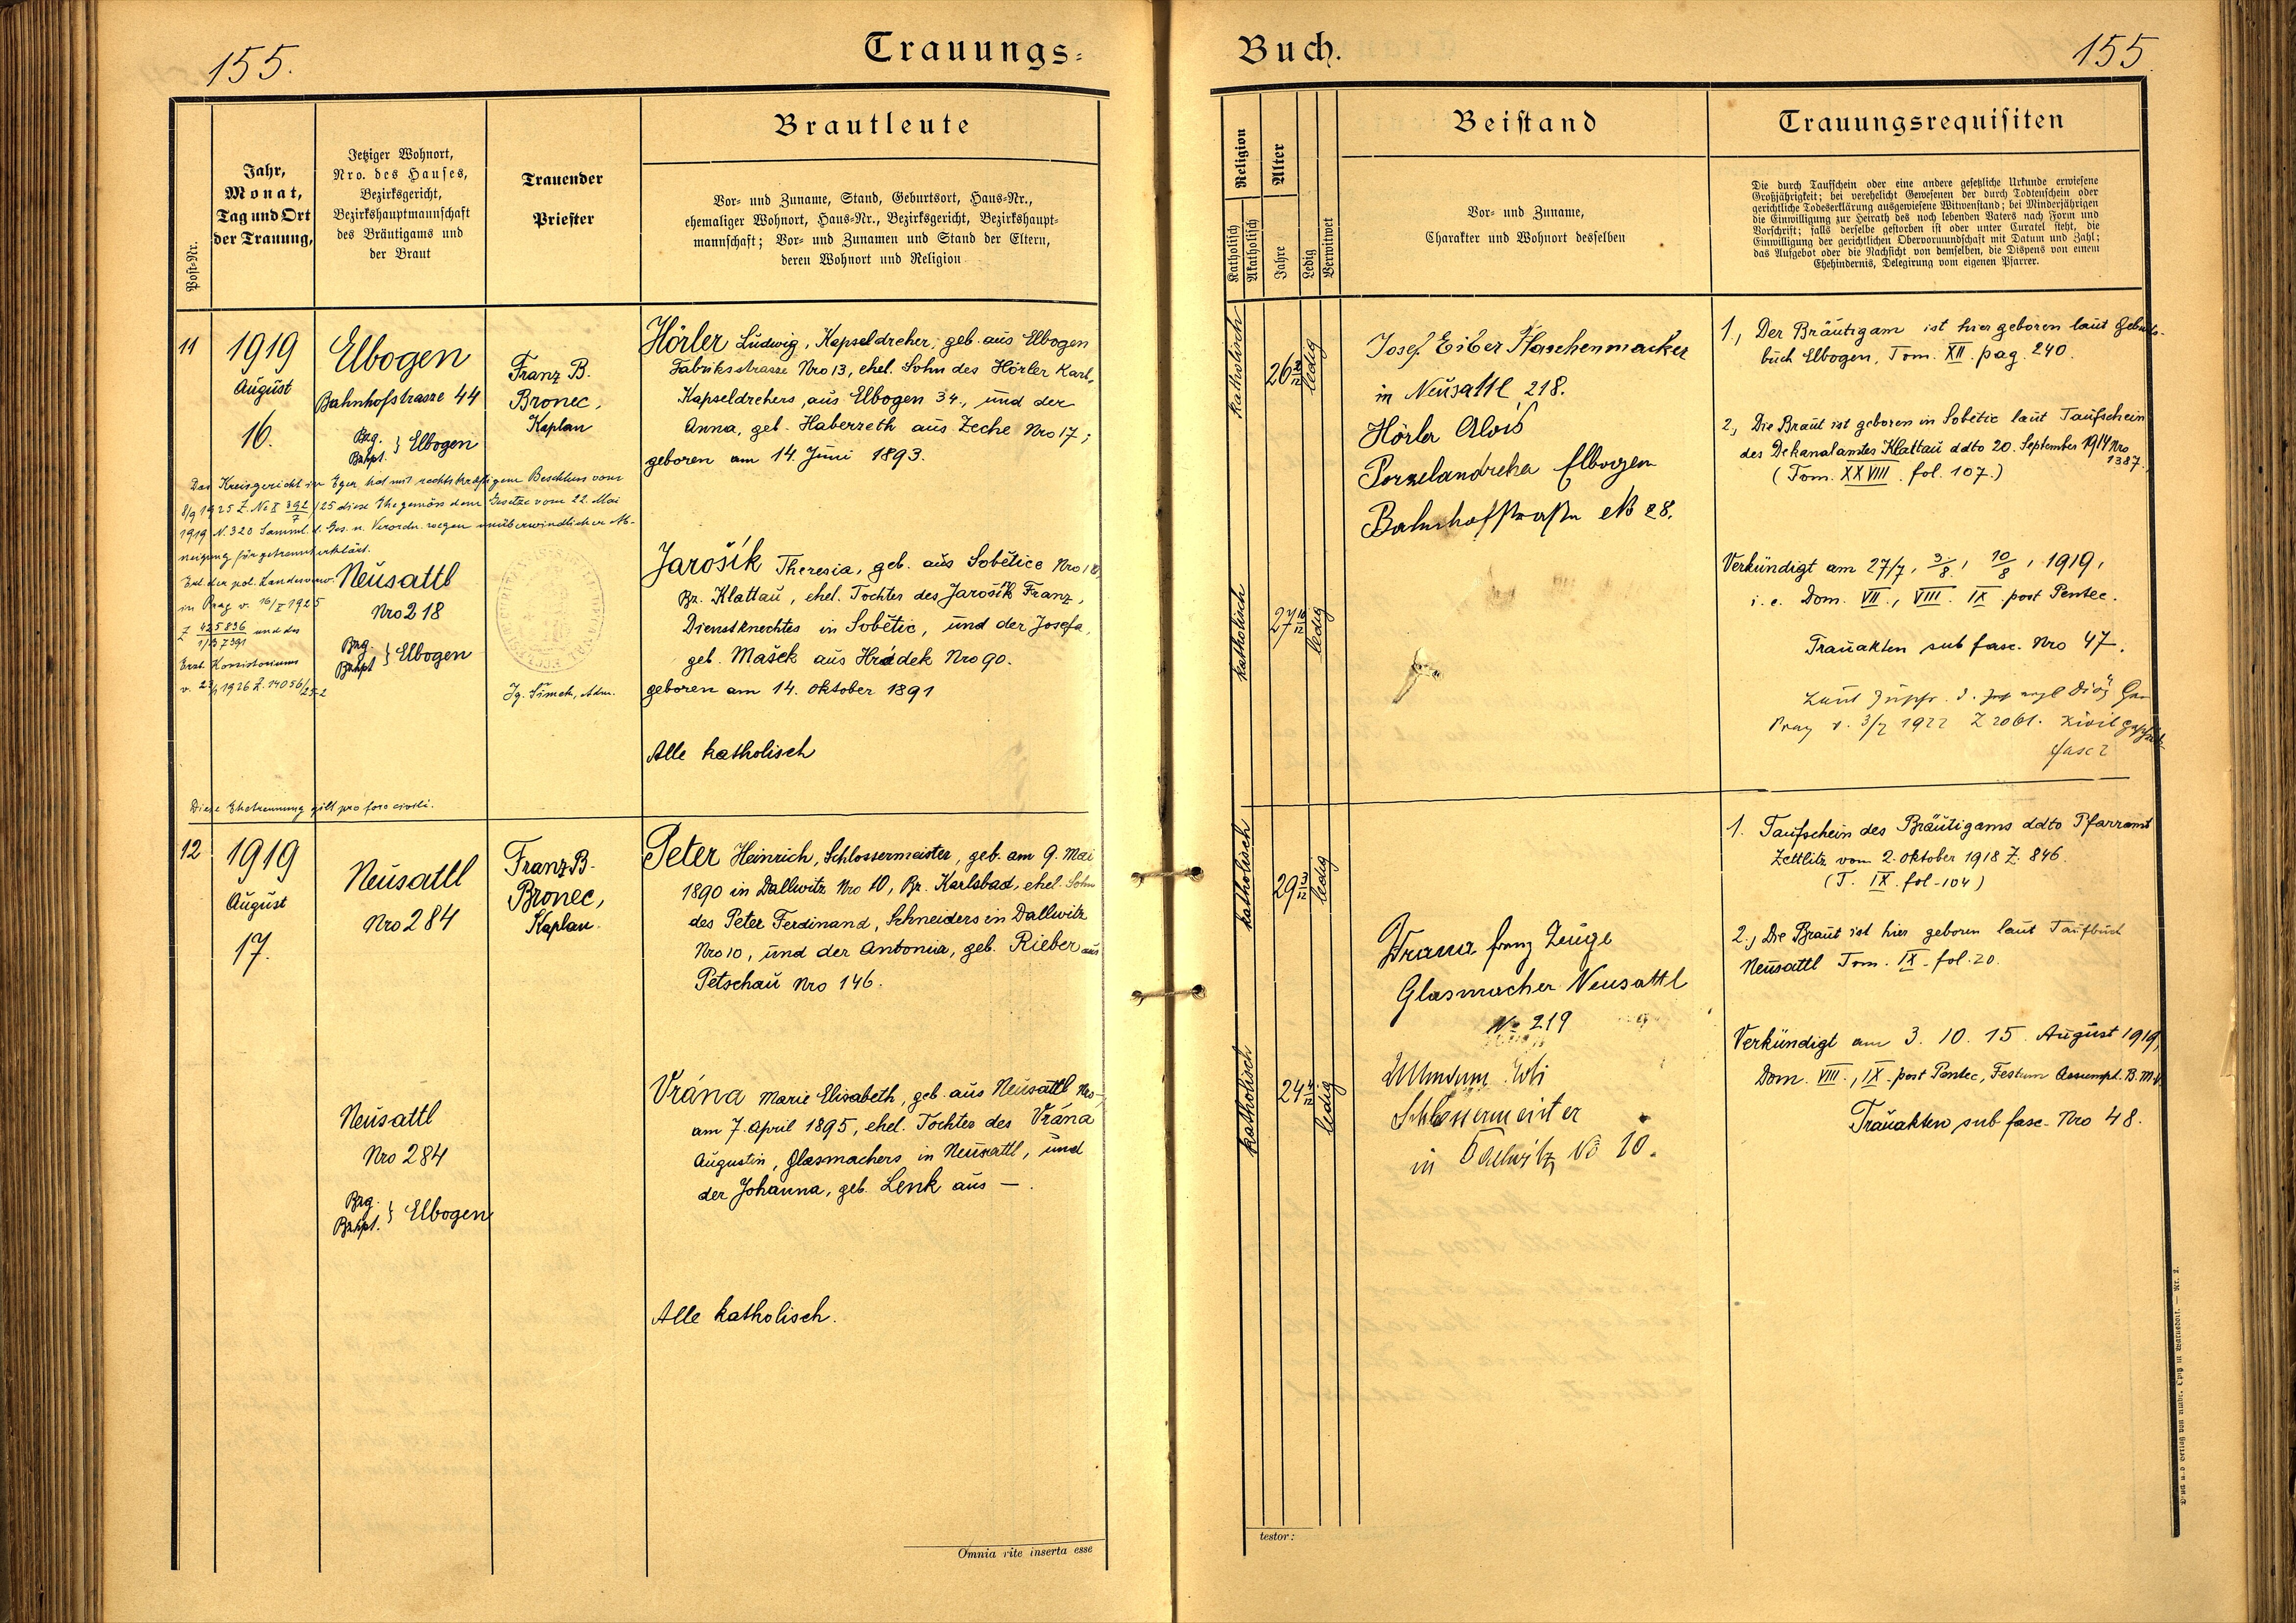 155.
Trauungs-
Post-Nr.
Jahr,
Monat,
Tag und Ort
der Trauung,
Jetziger Wohnort,
Nro. des Hauses,
Bezirksgericht,
Bezirkshauptmannschaft
des Bräutigams und
der Braut
Trauender
Priester
Brautleute
Vor- und Zuname, Stand, Geburtsort, Haus-Nr.,
ehemaliger Wohnort, Haus-Nr., Bezirksgericht, Bezirkshaupt-
mannschaft; Vor- und Zunamen und Stand der Eltern,
deren Wohnort und Religion
11
1919
August
16.
Elbogen
Bahnhofstrasse 44
Bzg.
Bzhpt. } Elbogen
Franz B.
Bronec,
Kaplan
Hörler Ludwig, Kapseldreher, geb. aus Elbogen
Fabriksstrasse Nro 13, ehel. Sohn des Hörler Karl,
Kapseldrehers aus Elbogen 34., und der
Anna, geb. Haberzeth aus Zeche Nro 17;
geboren am 14. Juni 1893.
Das Kreisgericht in Eger hat mit rechtskräftigem Beschluss vom
8/9 1925 Z. Nc I 392/7 /25 diese Ehe gemäss dem Gesetze vom 22. Mai
1919 N. 320 Samml. d. Ges. u. Verordn. wegen unüberwindlicher Ab-
neigung für getrennt erklärt.
Erl. der pol. Landesverw.
in Prag v. 16/I 1925
Z 425836 und des
Erzb. Konsistoriums
v. 1926 Z. 14056/25-2
Neusattl
Nro 218
Bzg.
Bzhpt } Elbogen
Jg. Šimek, Adm.
Jarošík Theresia, geb. aus Sobětice Nro 12,
Bz. Klattau, ehel. Tochter des Jarošík Franz,
Dienstknechtes in Sobětic, und der Josefa,
geb. Mašek aus Hrádek Nro 90.
geboren am 14. Oktober 1891
Alle katholisch
Diese Ehetrennung gilt pro foro civili.
12
1919
August
17.
Neusattl
Nro 284
Franz B.
Bronec,
Kaplan.
Peter Heinrich, Schlossermeister, geb. am 9. Mai
1890 in Dallwitz Nro 10, Bz. Karlsbad, ehel. Sohn
des Peter Ferdinand, Schneiders in Dallwitz
Nro 10, und der Antonia, geb. Rieber aus
Petschau Nro 146.
Neusattl
Nro 284
Bzg.
Bzhpt. } Elbogen
Vrána Marie Elisabeth, geb. aus Neusattl Nro -,
am 7. April 1895, ehel. Tochter des Vrána
Augustin, Glasmachers in Neusattl, und
der Johanna, geb. Lenk aus —.
Alle katholisch.
Omnia rite inserta esse
Buch.
155
Religion
Katholisch
Akatholisch
Alter
Jahre
Ledig
Verwitwet
Beistand
Vor- und Zuname,
Charakter und Wohnort desselben
Trauungsrequisiten
Die durch Taufschein oder eine andere gesetzliche Urkunde erwiesene
Großjährigkeit; bei verehelicht Gewesenen der durch Todtenschein oder
gerichtliche Todeserklärung ausgewiesene Witwenstand; bei Minderjährigen
die Einwilligung zur Heirath des noch lebenden Vaters nach Form und
Vorschrift; falls derselbe gestorben ist oder unter Curatel steht, die
Einwilligung der gerichtlichen Obervormundschaft mit Datum und Zahl;
das Aufgebot oder die Nachsicht von demselben, die Dispens von einem
Ehehindernis, Delegirung vom eigenen Pfarrer.
katholisch
26 2/12
ledig
Josef Eiber Flaschenmacker
in Neusattl 218.
Hörler Alois
Porzelandreher Elbogen
Bahnhofstraße No 28.
1., Der Bräutigam ist hier geboren laut Geburts-
buch Elbogen, Tom. XII. pag. 240.
2., Die Braut ist geboren in Sobětic laut Taufschein
des Dekanalamtes Klattau ddto 20. September 1914 Nro
1387.
(Tom. XXVIII. fol. 107.)
katholisch
27 10/12
ledig
Verkündigt am 27/7, 3/8, 10/8, 1919,
i. e. Dom. VII., VIII. IX post Pentec.
Trauakten sub fasc. Nro 47.
Prag v. 3/7 1922 Z 2061.
fasc 2
katholisch
29 3/12
ledig
Vrana franz Zeuge
Glasmacher Neusattl
No 219
Schlossermeister
in Dallwitz No 10.
1. Taufschein des Bräutigams ddto Pfarramt
Zettlitz vom 2. Oktober 1918 Z. 846.
(T. IX. fol. 104)
2., Die Braut ist hier geboren laut Taufbuch
Neusattl Tom. IX. fol. 20.
katholisch
24 4/12
ledig
Verkündigt am 3. 10. 15. August 1919,
Dom. VIII., IX. post Pentec, Festum Assumpt. B. M. V.
Trauakten sub fasc. Nro 48.
testor: